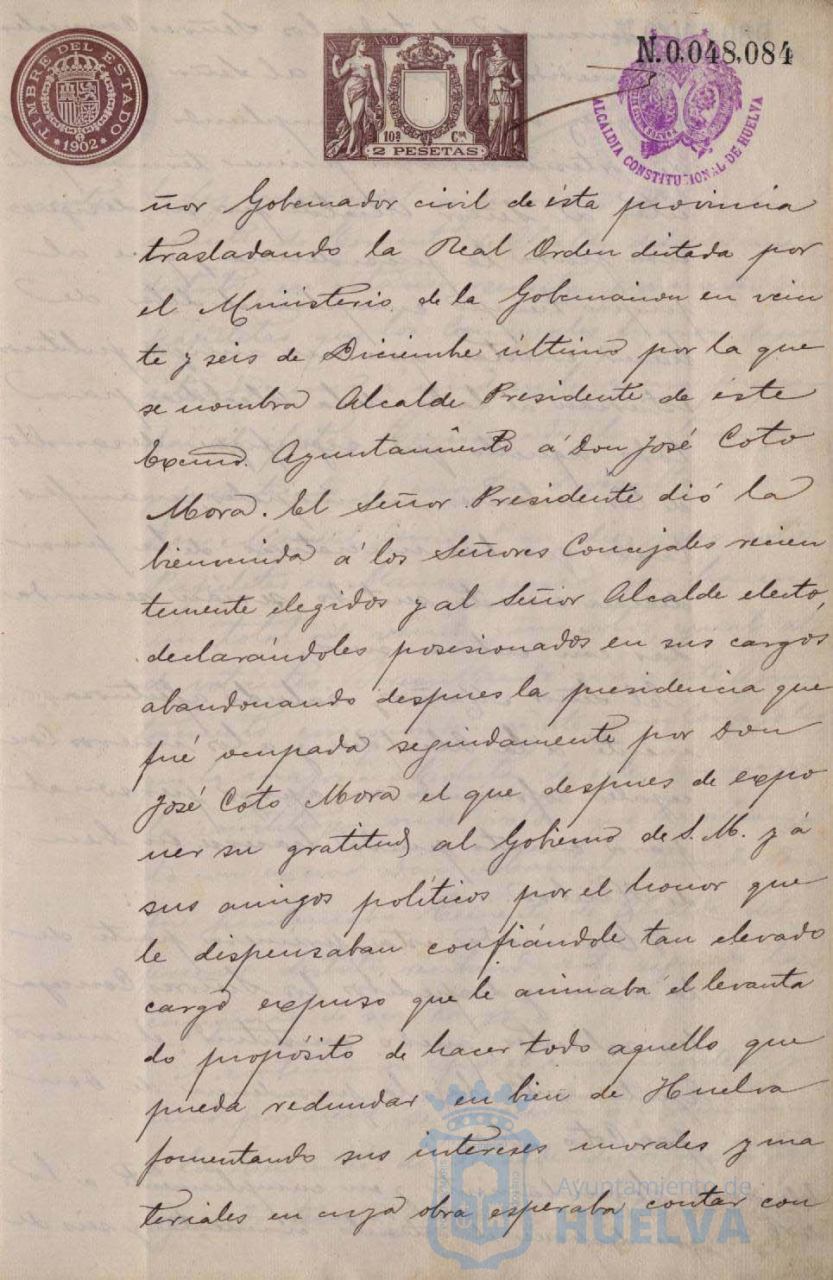 TIMBRE DEL ESTADO
* 1902 *
AÑO 1902
10ª Cª
2 PESETAS
N.0,048,084
ALCALDIA CONSTITUCIONAL DE HUELVA
ñor Gobernador civil de ésta provincia
trasladando la Real Orden dictada por
el Ministerio de la Gobernacion en vein
te y seis de Diciembre último por la que
se nombra Alcalde Presidente de éste
Excmo. Ayuntamiento á Don José Coto
Mora. El Señor Presidente dió la
bienvenida á los Señores Concejales recien
temente elegidos y al Señor Alcalde electo,
declarándoles posesionados en sus cargos
abandonando despues la presidencia que
fué ocupada seguidamente por Don
José Coto Mora el que despues de expo
ner su gratitud al Gobierno de S. M. y á
sus amigos políticos por el honor que
le dispensaban confiándole tan elevado
cargo expuso que le animaba el levanta
do propósito de hacer todo aquello que
pueda redundar en bien de Huelva
fomentando sus intereses morales y ma
teriales en cuya obra esperaba contar con
Ayuntamiento de
HUELVA